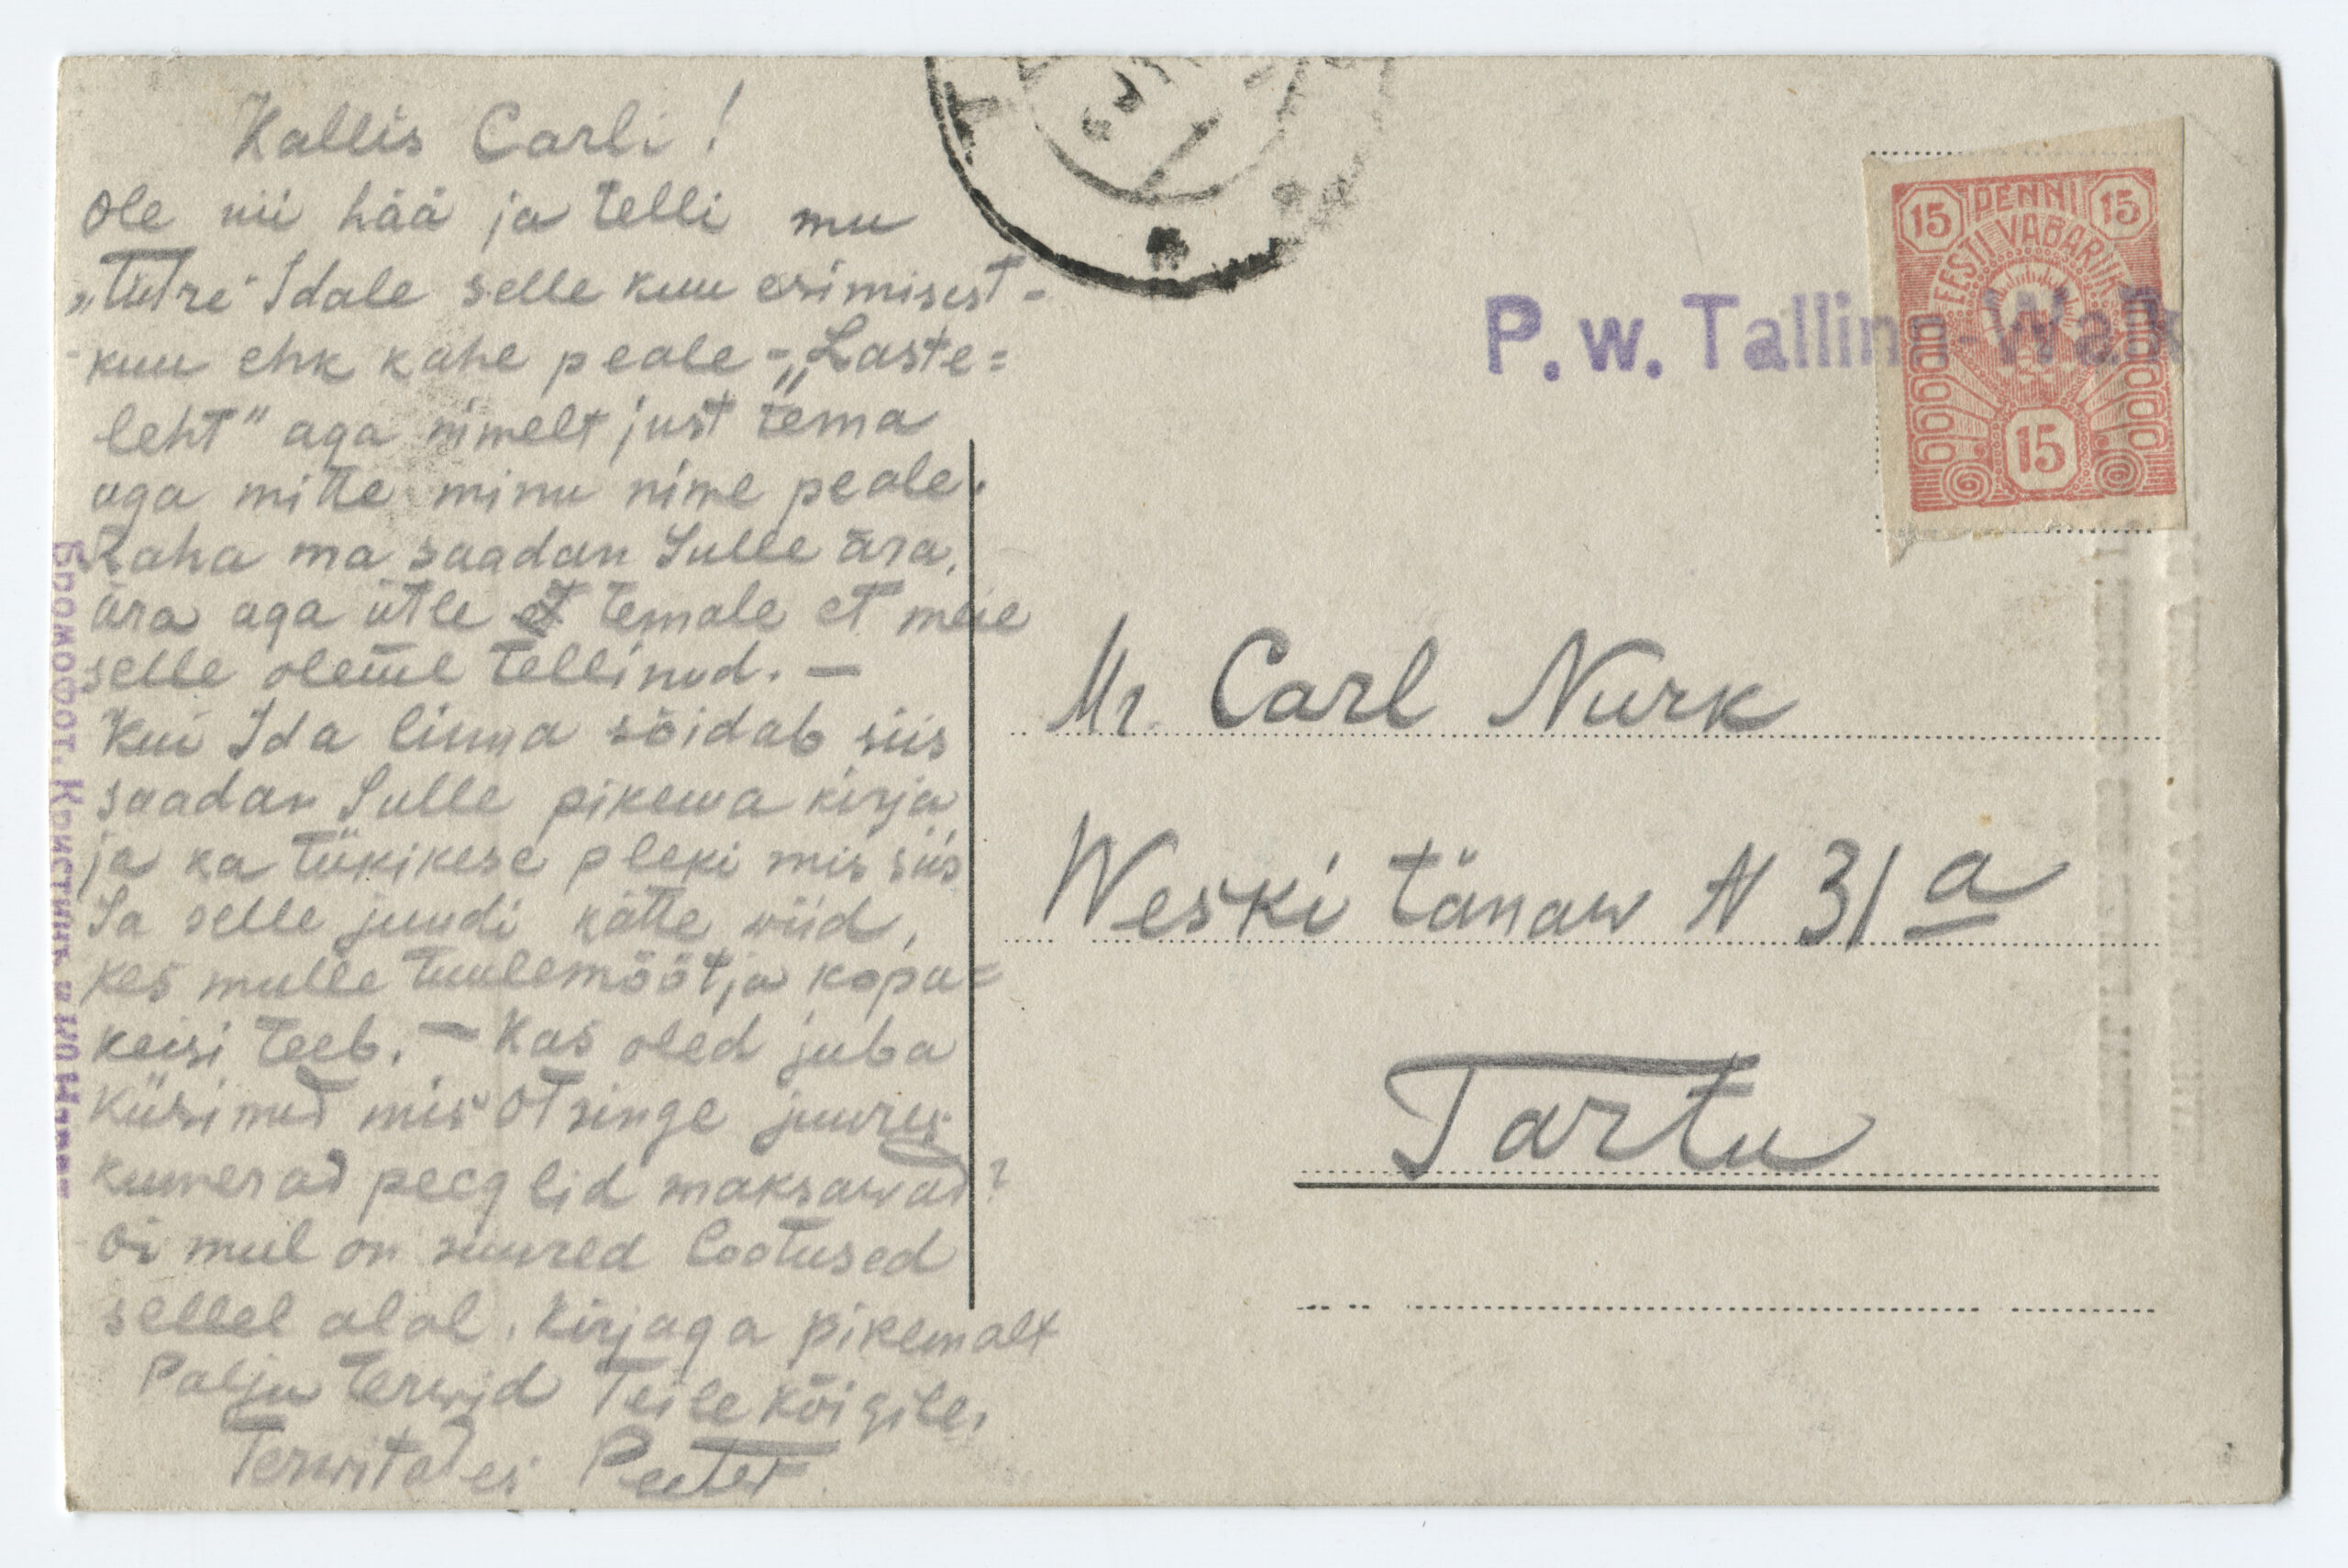 Kallis Carli!
Ole nii hää ja telli mu
„Tütre" Idale selle kuu esimisest-
kuu ehk kahe peale - „Laste=
leht" aga nimelt just tema
aga mitte minu nime peale.
Raha ma saadan Sulle ära,
ära aga ütle temale et meie
selle oleme tellinud. —
Kui Ida linna sõidab siis
saadan Sulle pikema kirja
ja ka tükikese pleki mis siis
Sa selle juudi kätte wiid,
kes mulle tuulemõõtja kopa=
keisi teeb. — Kas oled juba
küsinud mis Otsinge juures
kumerad peeglid maksawad?
Oi mul on suured lootused
sellel alal. Kirjaga pikemalt
Palju terwid Teile kõigile.
Terwitades Peeter
P. w. Tallinn-Walk
15 PENNI 15
EESTI VABARIIK
15
Mr. Carl Nurk
Weski tänaw N 31 a
Tartu
Бромофот. Кристин и Ко